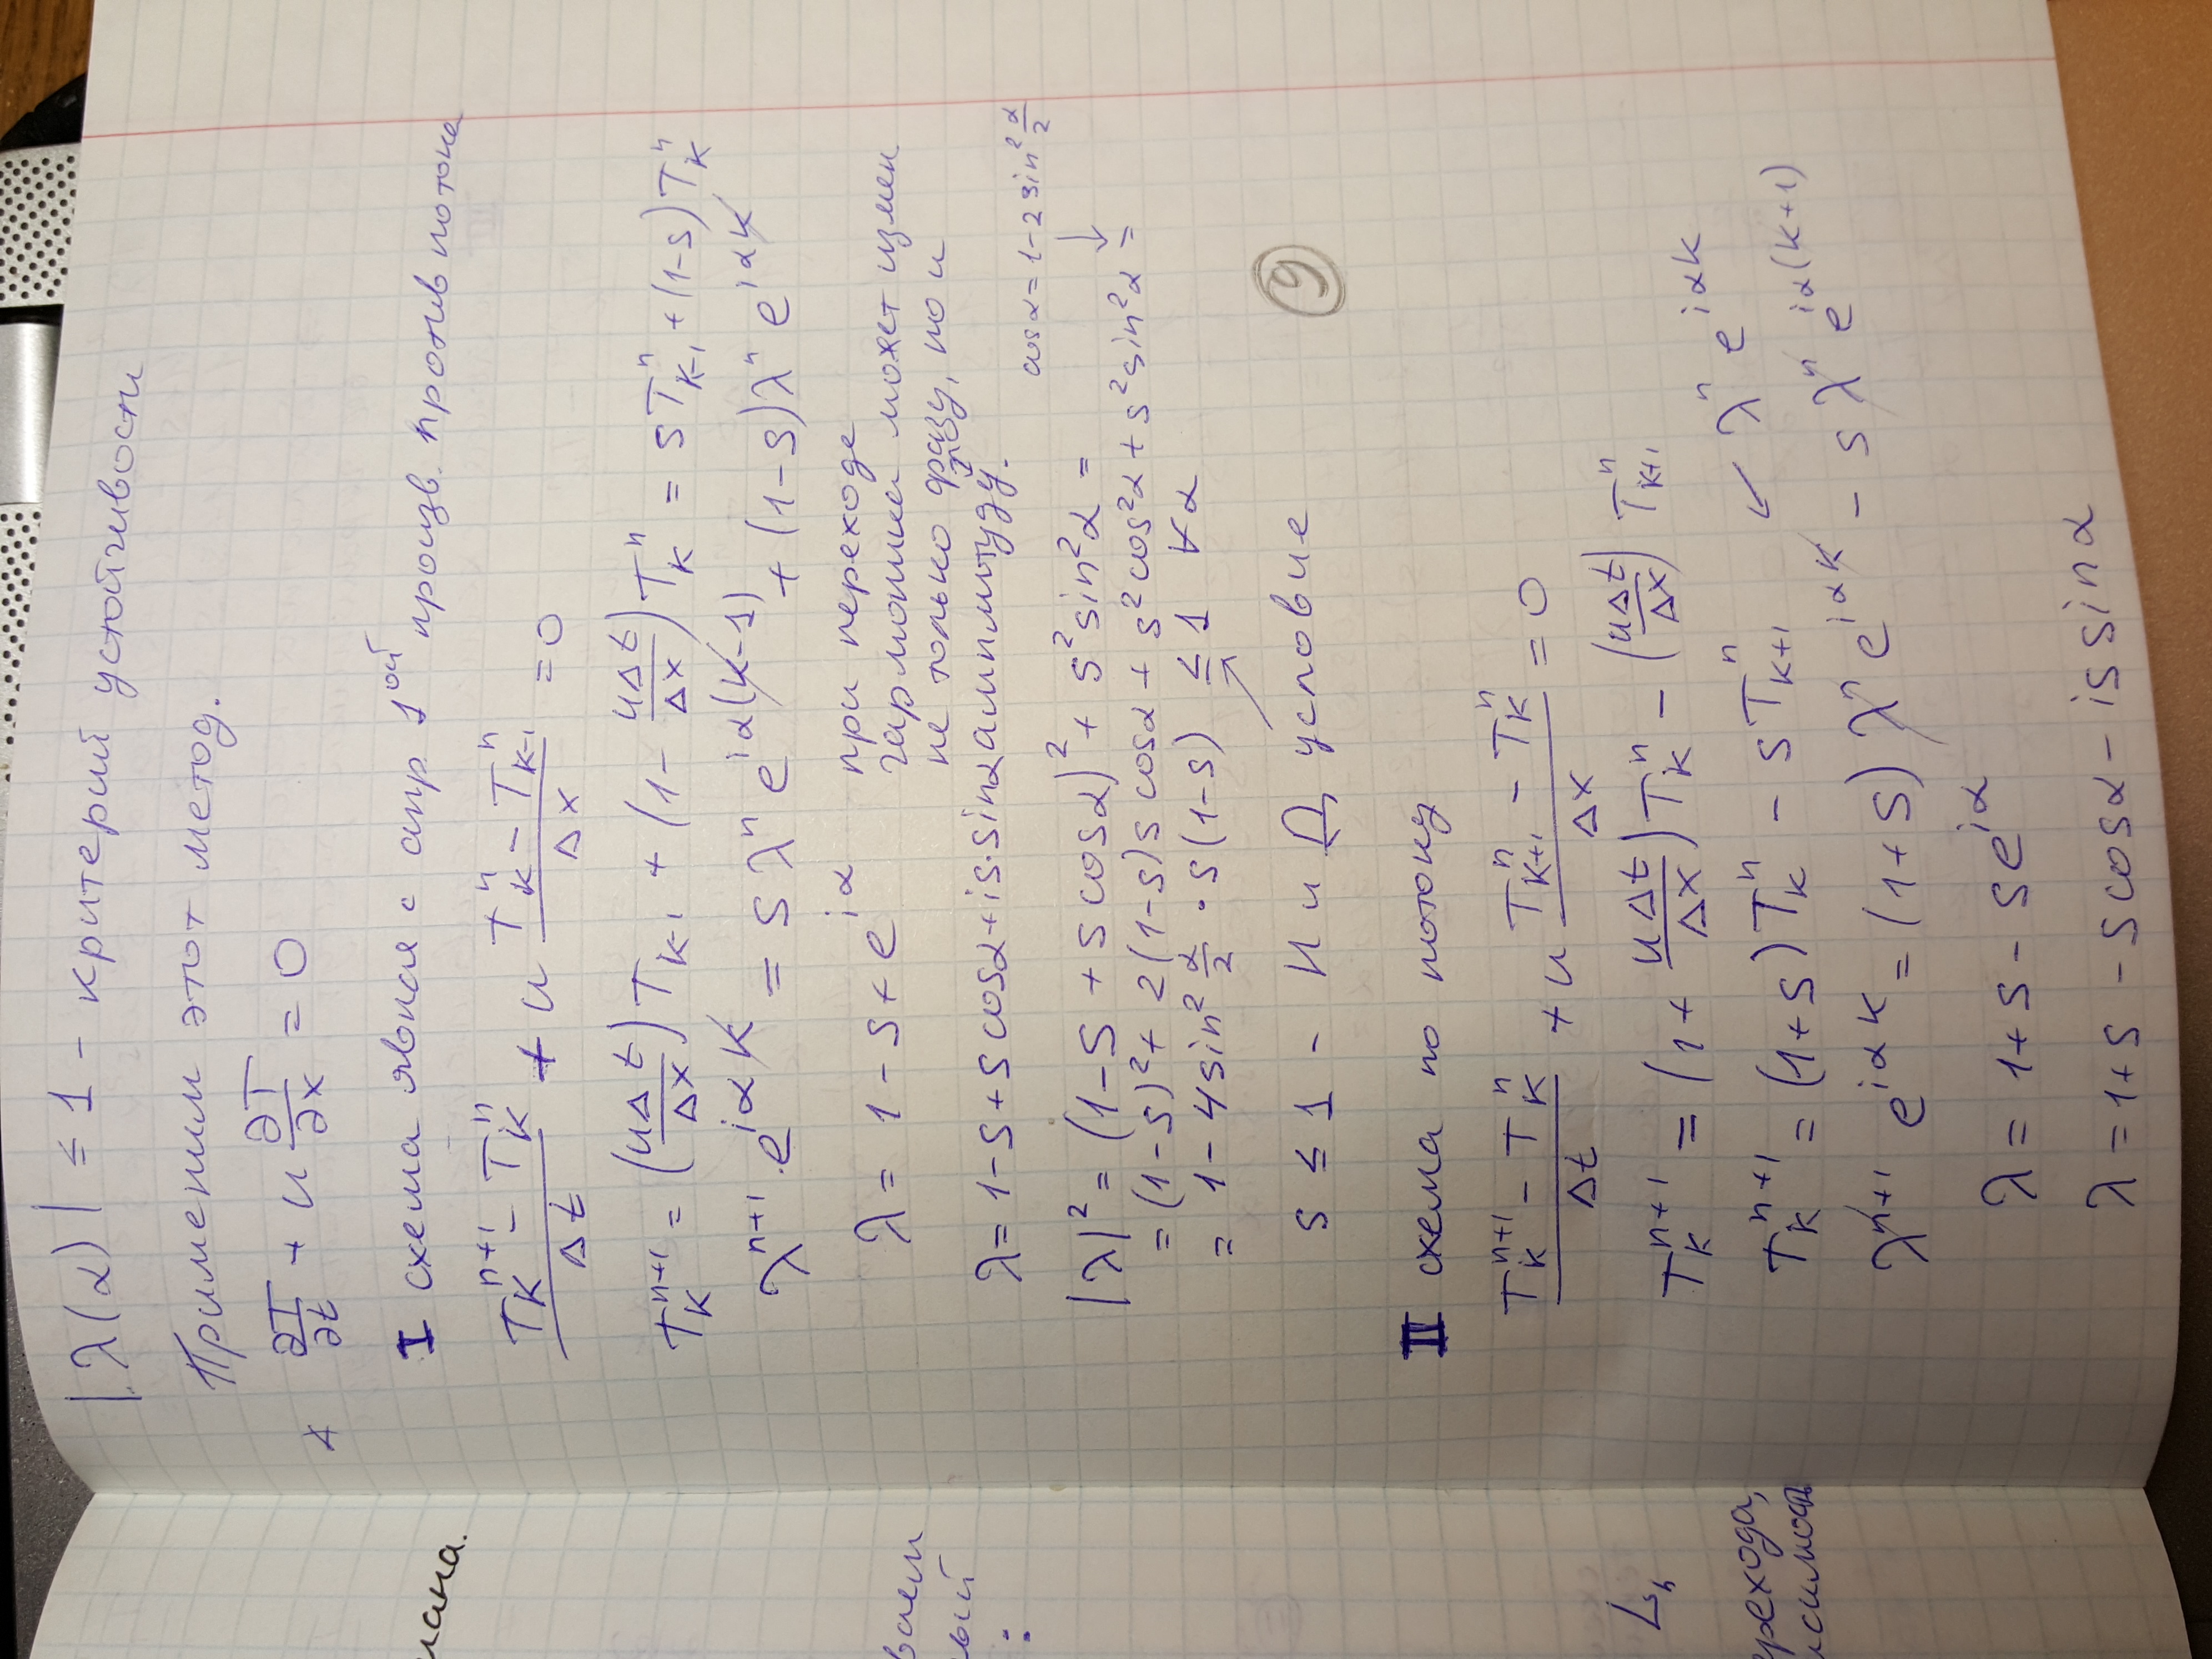 |λ(α)| ≤ 1 - критерий устойчивости
Применим этот метод.
∂T/∂t + u ∂T/∂x = 0
I схема явная с апр. 1ой произв. против потока
(T_k^{n+1} - T_k^n)/Δt + u (T_k^n - T_{k-1}^n)/Δx = 0
T_k^{n+1} = (uΔt/Δx) T_{k-1} + (1 - uΔt/Δx) T_k^n = s T_{k-1}^n + (1-s) T_k^n
λ^{n+1} · e^{iαk} = s λ^n e^{iα(k-1)} + (1-s) λ^n e^{iαk}
λ = 1 - s + e^{iα}
при переходе
гармоника может измен
не только фазу, но и
амплитуду.
λ = 1 - s + s cosα + is · sinα
cosα = 1 - 2 sin² α/2
|λ|² = (1 - s + s cosα)² + s² sin²α =
= (1-s)² + 2(1-s)s cosα + s² cos²α + s² sin²α =
= 1 - 4 sin² α/2 · s(1-s) ≤ 1 ∀α
s ≤ 1 - Н и Д условие
9
II схема по потоку
(T_k^{n+1} - T_k^n)/Δt + u (T_{k+1}^n - T_k^n)/Δx = 0
T_k^{n+1} = (1 + uΔt/Δx) T_k^n - (uΔt/Δx) T_{k+1}^n
T_k^{n+1} = (1+s) T_k^n - s T_{k+1}^n ← λ^n e^{iαk}
λ^{n+1} e^{iαk} = (1+s) λ^n e^{iαk} - s λ^n e^{iα(k+1)}
λ = 1 + s - s e^{iα}
λ = 1 + s - s cosα - is sinα